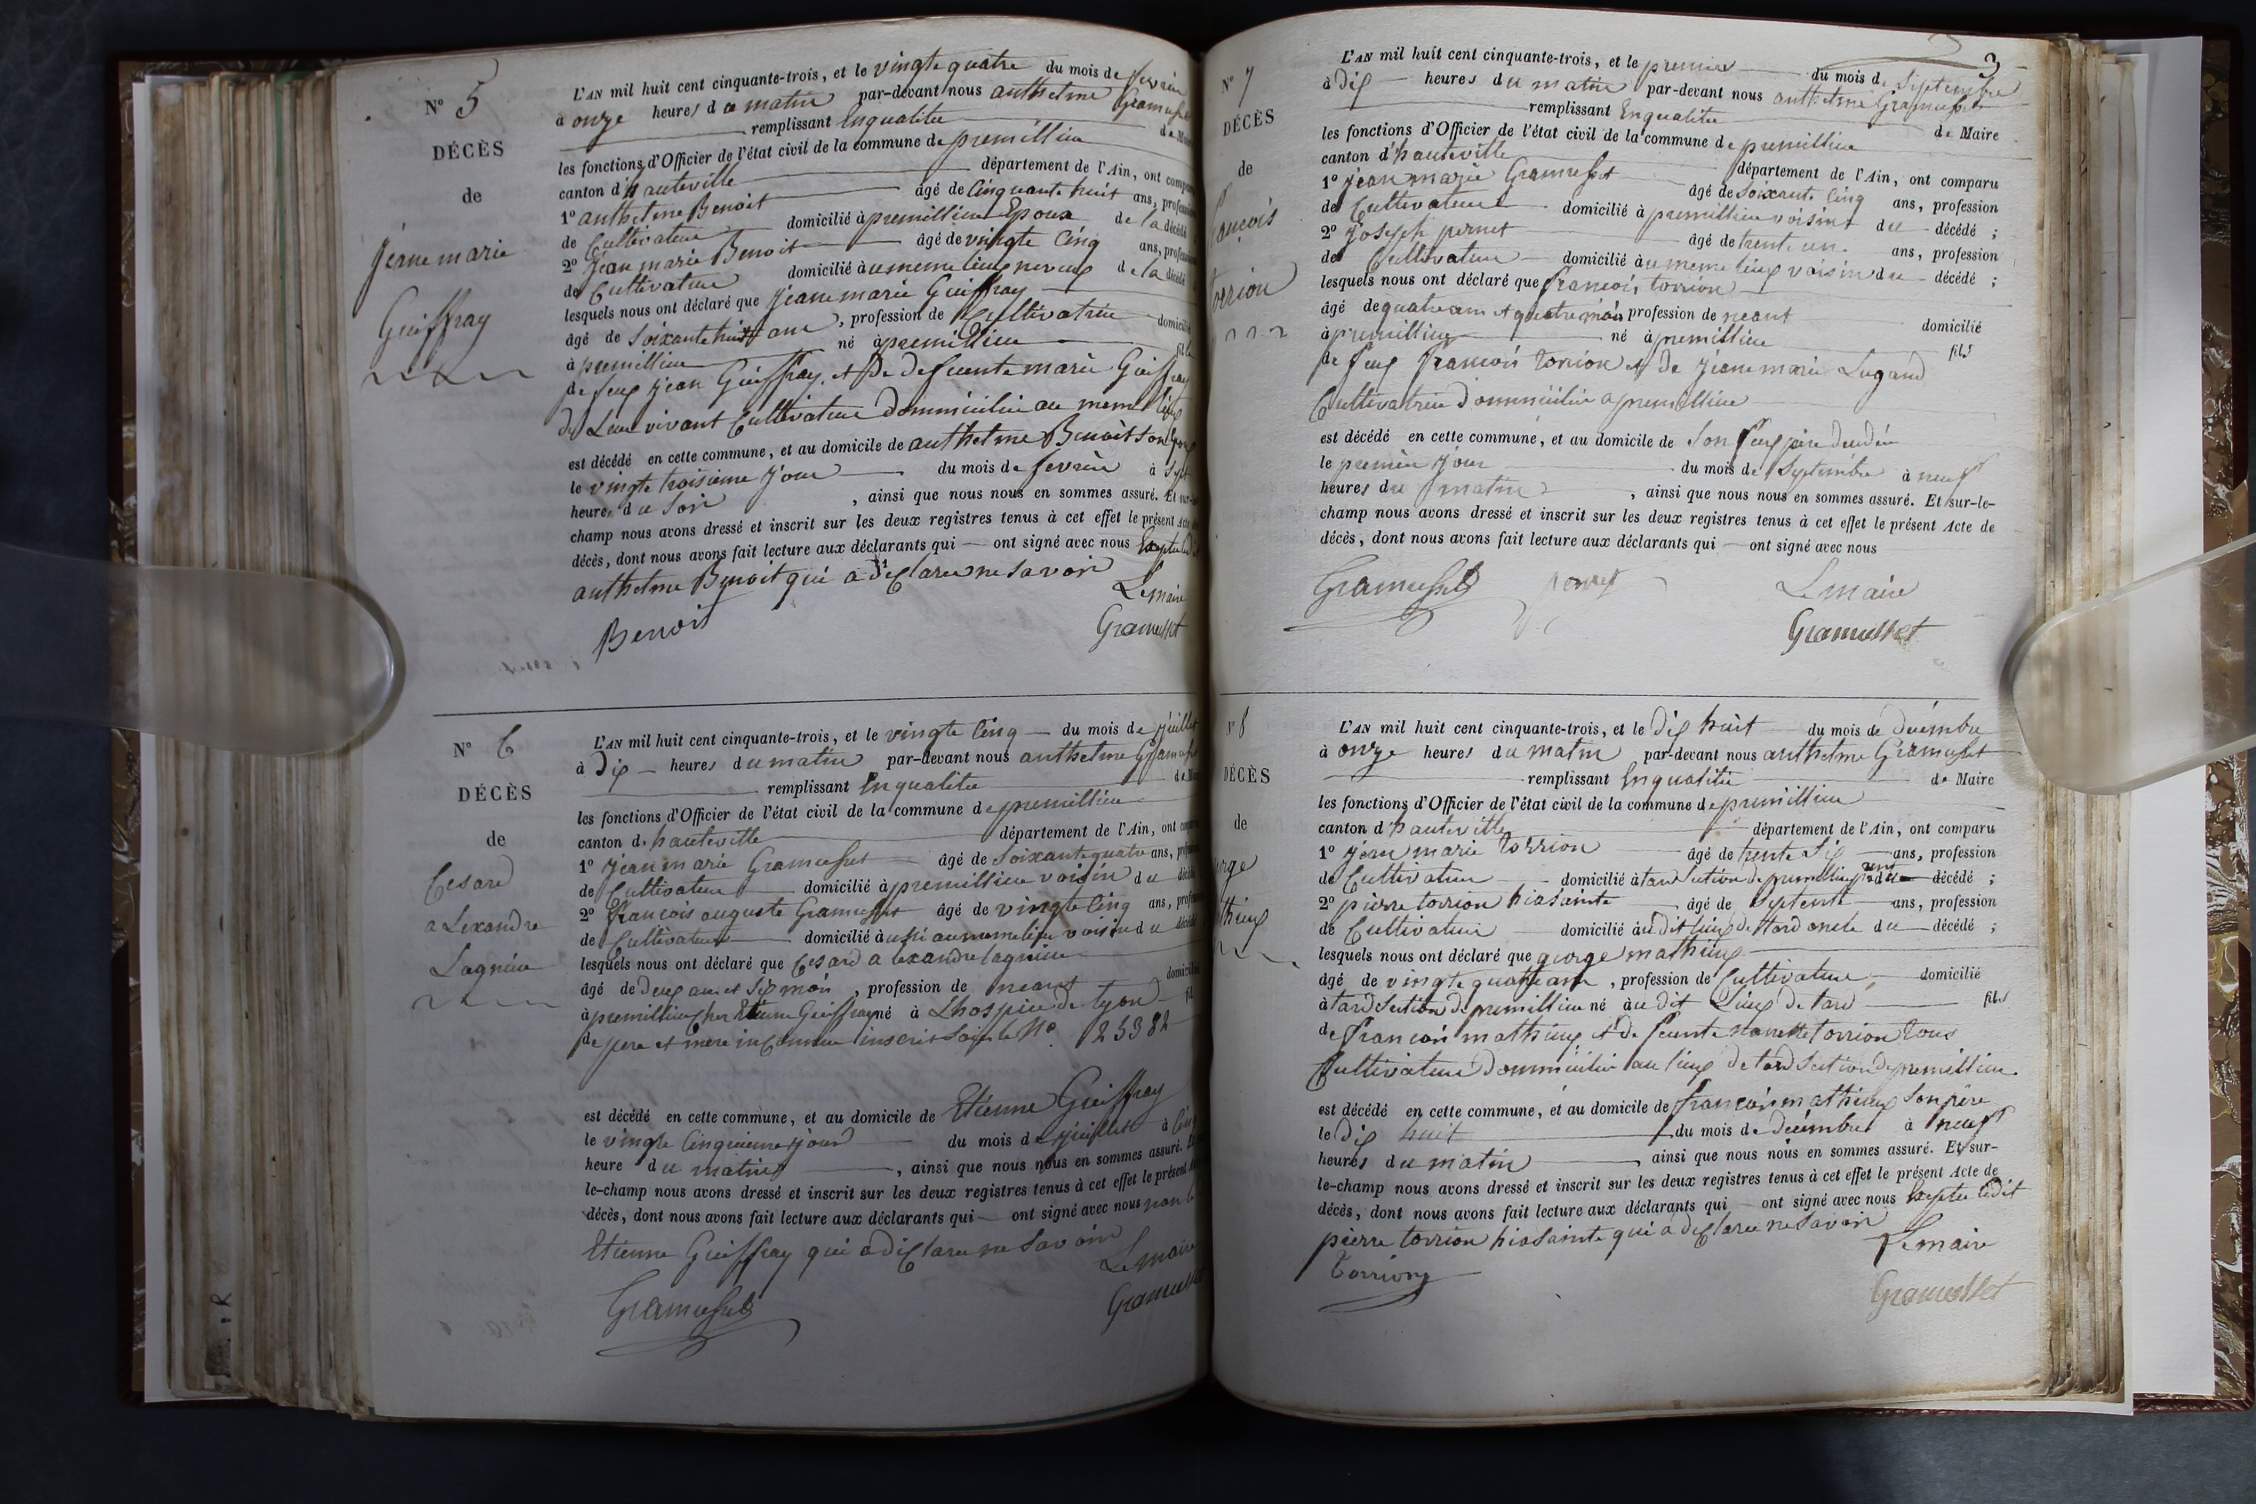 N° 5
DÉCÈS
de
jeane marie
Guiffray
L'AN mil huit cent cinquante-trois, et le vingte quatre du mois de fevrier
à onze heures du matin par-devant nous anthelme Gramusset
remplissant Enqualitée de Maire
les fonctions d'Officier de l'état civil de la commune de premillieu
canton d'hauteville département de l'Ain, ont comparu
1° anthelme Benoit âgé de Cinquante huit ans, profession
de Cultivateur domicilié à premillieu Epoux de la décédé
2° jean marie Benoit âgé de vingte Cinq ans, profession
de Cultivateur domicilié à u meme lieux neveux de la décédé
lesquels nous ont déclaré que jeane marie Guiffray
âgé de soixante huit ans, profession de Cultivatrice domicilié
à premillieu né à premillieu fille
de feux jean Guiffray et De defuente marie Guiffray
De Leur vivant Cultivateur Dommicilié au meme lieux
est décédé en cette commune, et au domicile de anthelme Benoit son Epoux
le vingte troisieme jour du mois de fevrier à Sept
heures du Soir, ainsi que nous nous en sommes assuré. Et sur-le-
champ nous avons dressé et inscrit sur les deux registres tenus à cet effet le présent Acte de
décès, dont nous avons fait lecture aux déclarants qui ont signé avec nous Exeptee ledit
anthelme Benoit qui a déClaree ne savoir
Le maire
Benoit Gramusset
N° 6
DÉCÈS
de
Cesard
aLexandre
Lagnieu
L'AN mil huit cent cinquante-trois, et le vingte Cinq du mois de juillet
à Dix heures du matin par-devant nous anthelme Gramusset
remplissant Enqualitée de Maire
les fonctions d'Officier de l'état civil de la commune de premillieu
canton d. hauteville département de l'Ain, ont comparu
1° jean marie Gramusset âgé de Soixante quatre ans, profession
de Cultivateur domicilié à premillieu voisin du décédé
2° francois auguste Gramusset âgé de vingte Cinq ans, profession
de Cultivateur domicilié à ussi au meme lieu voisin du décédé
lesquels nous ont déclaré que Cesard alexandre lagnieu
âgé de Deux ans et Six mois, profession de neant domicilié
à premillieu cher Etienne Guiffray né à Lhospice de lyon fil
de pere et mere inConnue inscrit Sous le N° 25382
est décédé en cette commune, et au domicile de Etienne Guiffray
le vingte Cinquieme jour du mois de juillet à Cinq
heure du matin, ainsi que nous nous en sommes assuré. Et sur-
le-champ nous avons dressé et inscrit sur les deux registres tenus à cet effet le présent Acte de
décès, dont nous avons fait lecture aux déclarants qui ont signé avec nous non le
Etienne Guiffray qui a déClaree ne savoir
Le maire
Gramusset Gramusset
3
N° 7
DÉCÈS
de
francois
torrion
L'AN mil huit cent cinquante-trois, et le premier du mois de Septembre
à Dix heures du matin par-devant nous anthelme Gramusset
remplissant Enqualitée de Maire
les fonctions d'Officier de l'état civil de la commune de premillieu
canton d'hauteville département de l'Ain, ont comparu
1° jean marie Gramusset âgé de Soixante Cinq ans, profession
de Cultivateur domicilié à premillieu voisin du décédé ;
2° joseph pernet âgé de trente un ans, profession
de Cultivateur domicilié à u meme lieux voisin du décédé ;
lesquels nous ont déclaré que francois torrion
âgé de quatre ans et quatre mois profession de neant domicilié
à premillieu né à premillieu fils
de feux francois torrion et De jeane marie Lugand
Cultivatrice Dommicilié a premillieu
est décédé en cette commune, et au domicile de Son feux père
le premier jour du mois de Septembre à neuf
heures du matin, ainsi que nous nous en sommes assuré. Et sur-le-
champ nous avons dressé et inscrit sur les deux registres tenus à cet effet le présent Acte de
décès, dont nous avons fait lecture aux déclarants qui ont signé avec nous
Gramusset pernet Le maire
Gramusset
N° 8
DÉCÈS
de
george
mathieux
L'AN mil huit cent cinquante-trois, et le Dix huit du mois de Décembre
à onze heures du matin par-devant nous anthelme Gramusset
remplissant Enqualitée de Maire
les fonctions d'Officier de l'état civil de la commune de premillieu
canton d'hauteville département de l'Ain, ont comparu
1° jean marie torrion âgé de trente Six ans, profession
de Cultivateur domicilié à tard Section de premillieu du décédé ;
2° pierre torrion hiasainte âgé de Septente ans, profession
de Cultivateur domicilié au Dit lieux de tard oncle du décédé ;
lesquels nous ont déclaré que george mathieux
âgé de vingte quatre ans, profession de Cultivateur domicilié
à tard Section De premillieu né au dit Lieux De tard fils
de francois mathieux et De feuente nanette torrion tous
Cultivateur Dommicilié au lieux de tard Section de premillieu
est décédé en cette commune, et au domicile de francois mathieux Son père
le Dix huit du mois de Décembre à neuf
heures du matin ainsi que nous nous en sommes assuré. Et sur-
le-champ nous avons dressé et inscrit sur les deux registres tenus à cet effet le présent Acte de
décès, dont nous avons fait lecture aux déclarants qui ont signé avec nous Exeptee ledit
pierre torrion hiasainte qui a déClaree ne Savoir
Le maire
Torrion
Gramusset